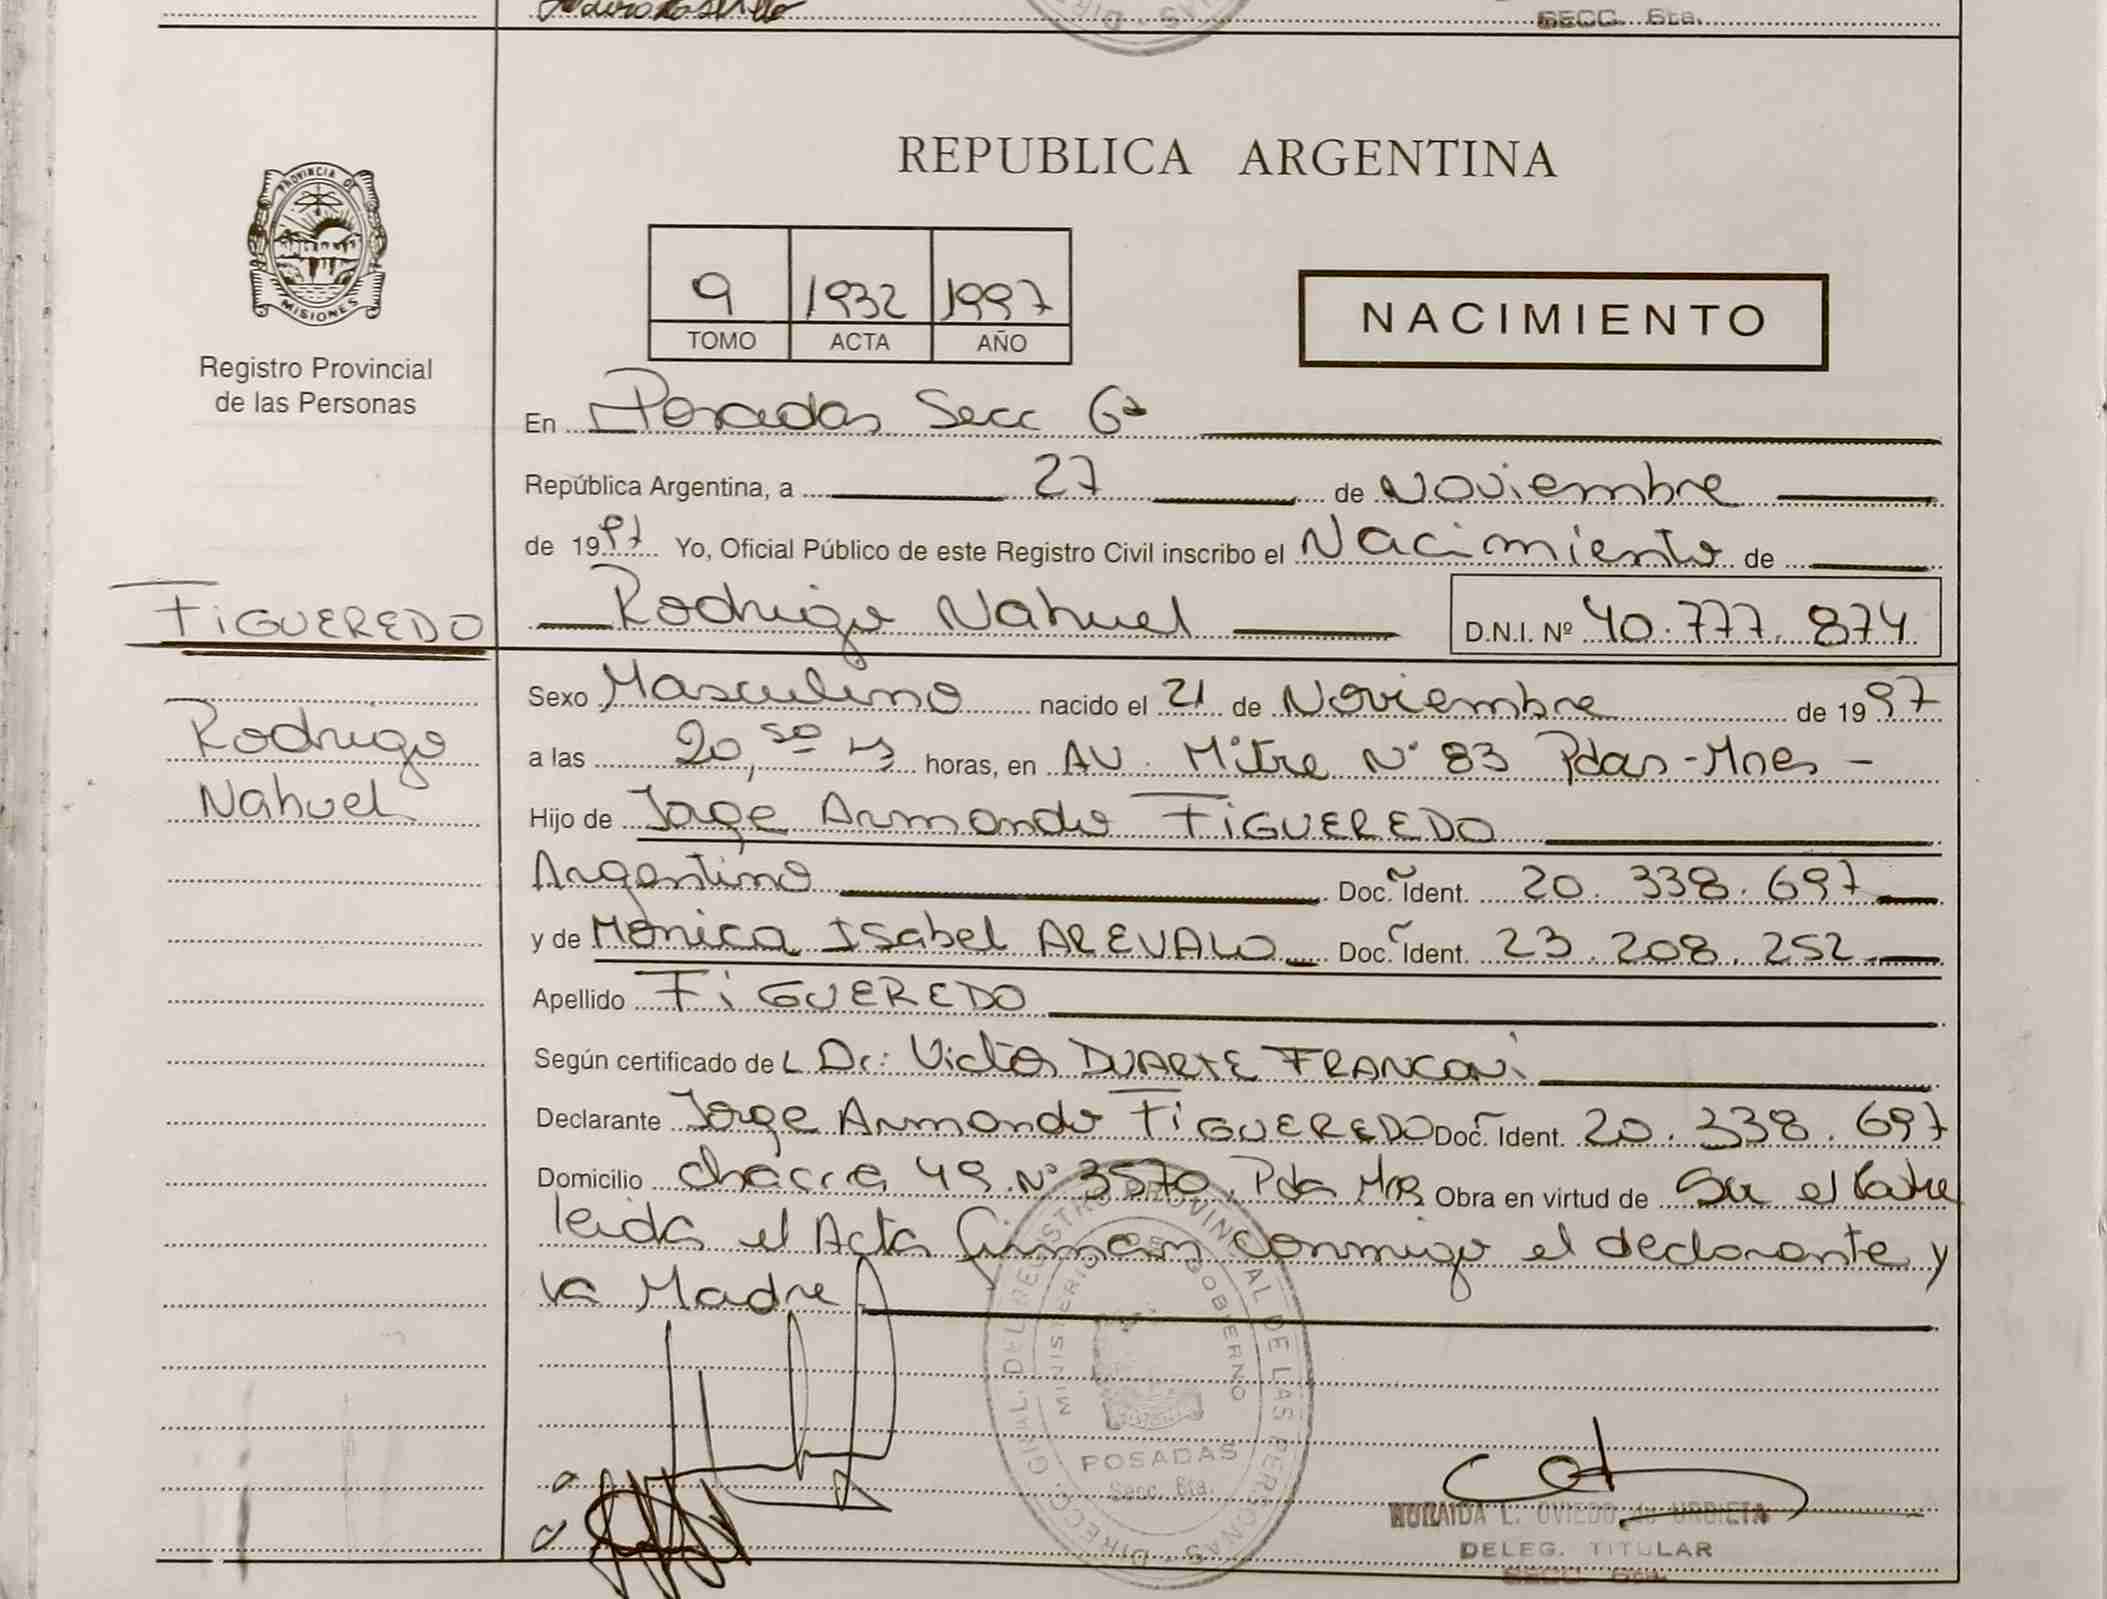 SECC. 6ta.
REPUBLICA ARGENTINA
PROVINCIA DE
MISIONES
Registro Provincial
de las Personas
9 1932 1997
TOMO ACTA AÑO
NACIMIENTO
En Posadas Secc 6ª
República Argentina, a 27 de Noviembre
de 1997 Yo, Oficial Público de este Registro Civil inscribo el Nacimiento de
FiGUEREDO
Rodrigo Nahuel D.N.I. Nº 40.777.874
Rodrigo
Nahuel
Sexo Masculino nacido el 21 de Noviembre de 1997
a las 20,50 hs horas, en AV. Mitre Nº 83 Pdas-Mnes -
Hijo de Jorge Armando FiGUEREDO
Argentino Doc. Ident. 20.338.697
y de Mónica Isabel AREVALO Doc. Ident. 23.208.252
Apellido FiGUEREDO
Según certificado de L Dr: Victor DUARTE FRANCONi
Declarante Jorge Armando FiGUEREDO Doc. Ident. 20.338.697
Domicilio chacra 49 Nº 3570, Pdas Mnes Obra en virtud de Ser el Padre
leida el Acta firman conmigo el declarante y
la Madre
DIRECC. GRAL. DEL REGISTRO PROVINCIAL DE LAS PERSONAS
MINISTERIO DE GOBIERNO
POSADAS
Secc. 6ta.
L. OVIEDO de URBIETA
DELEG. TITULAR
SECC. 6ta.